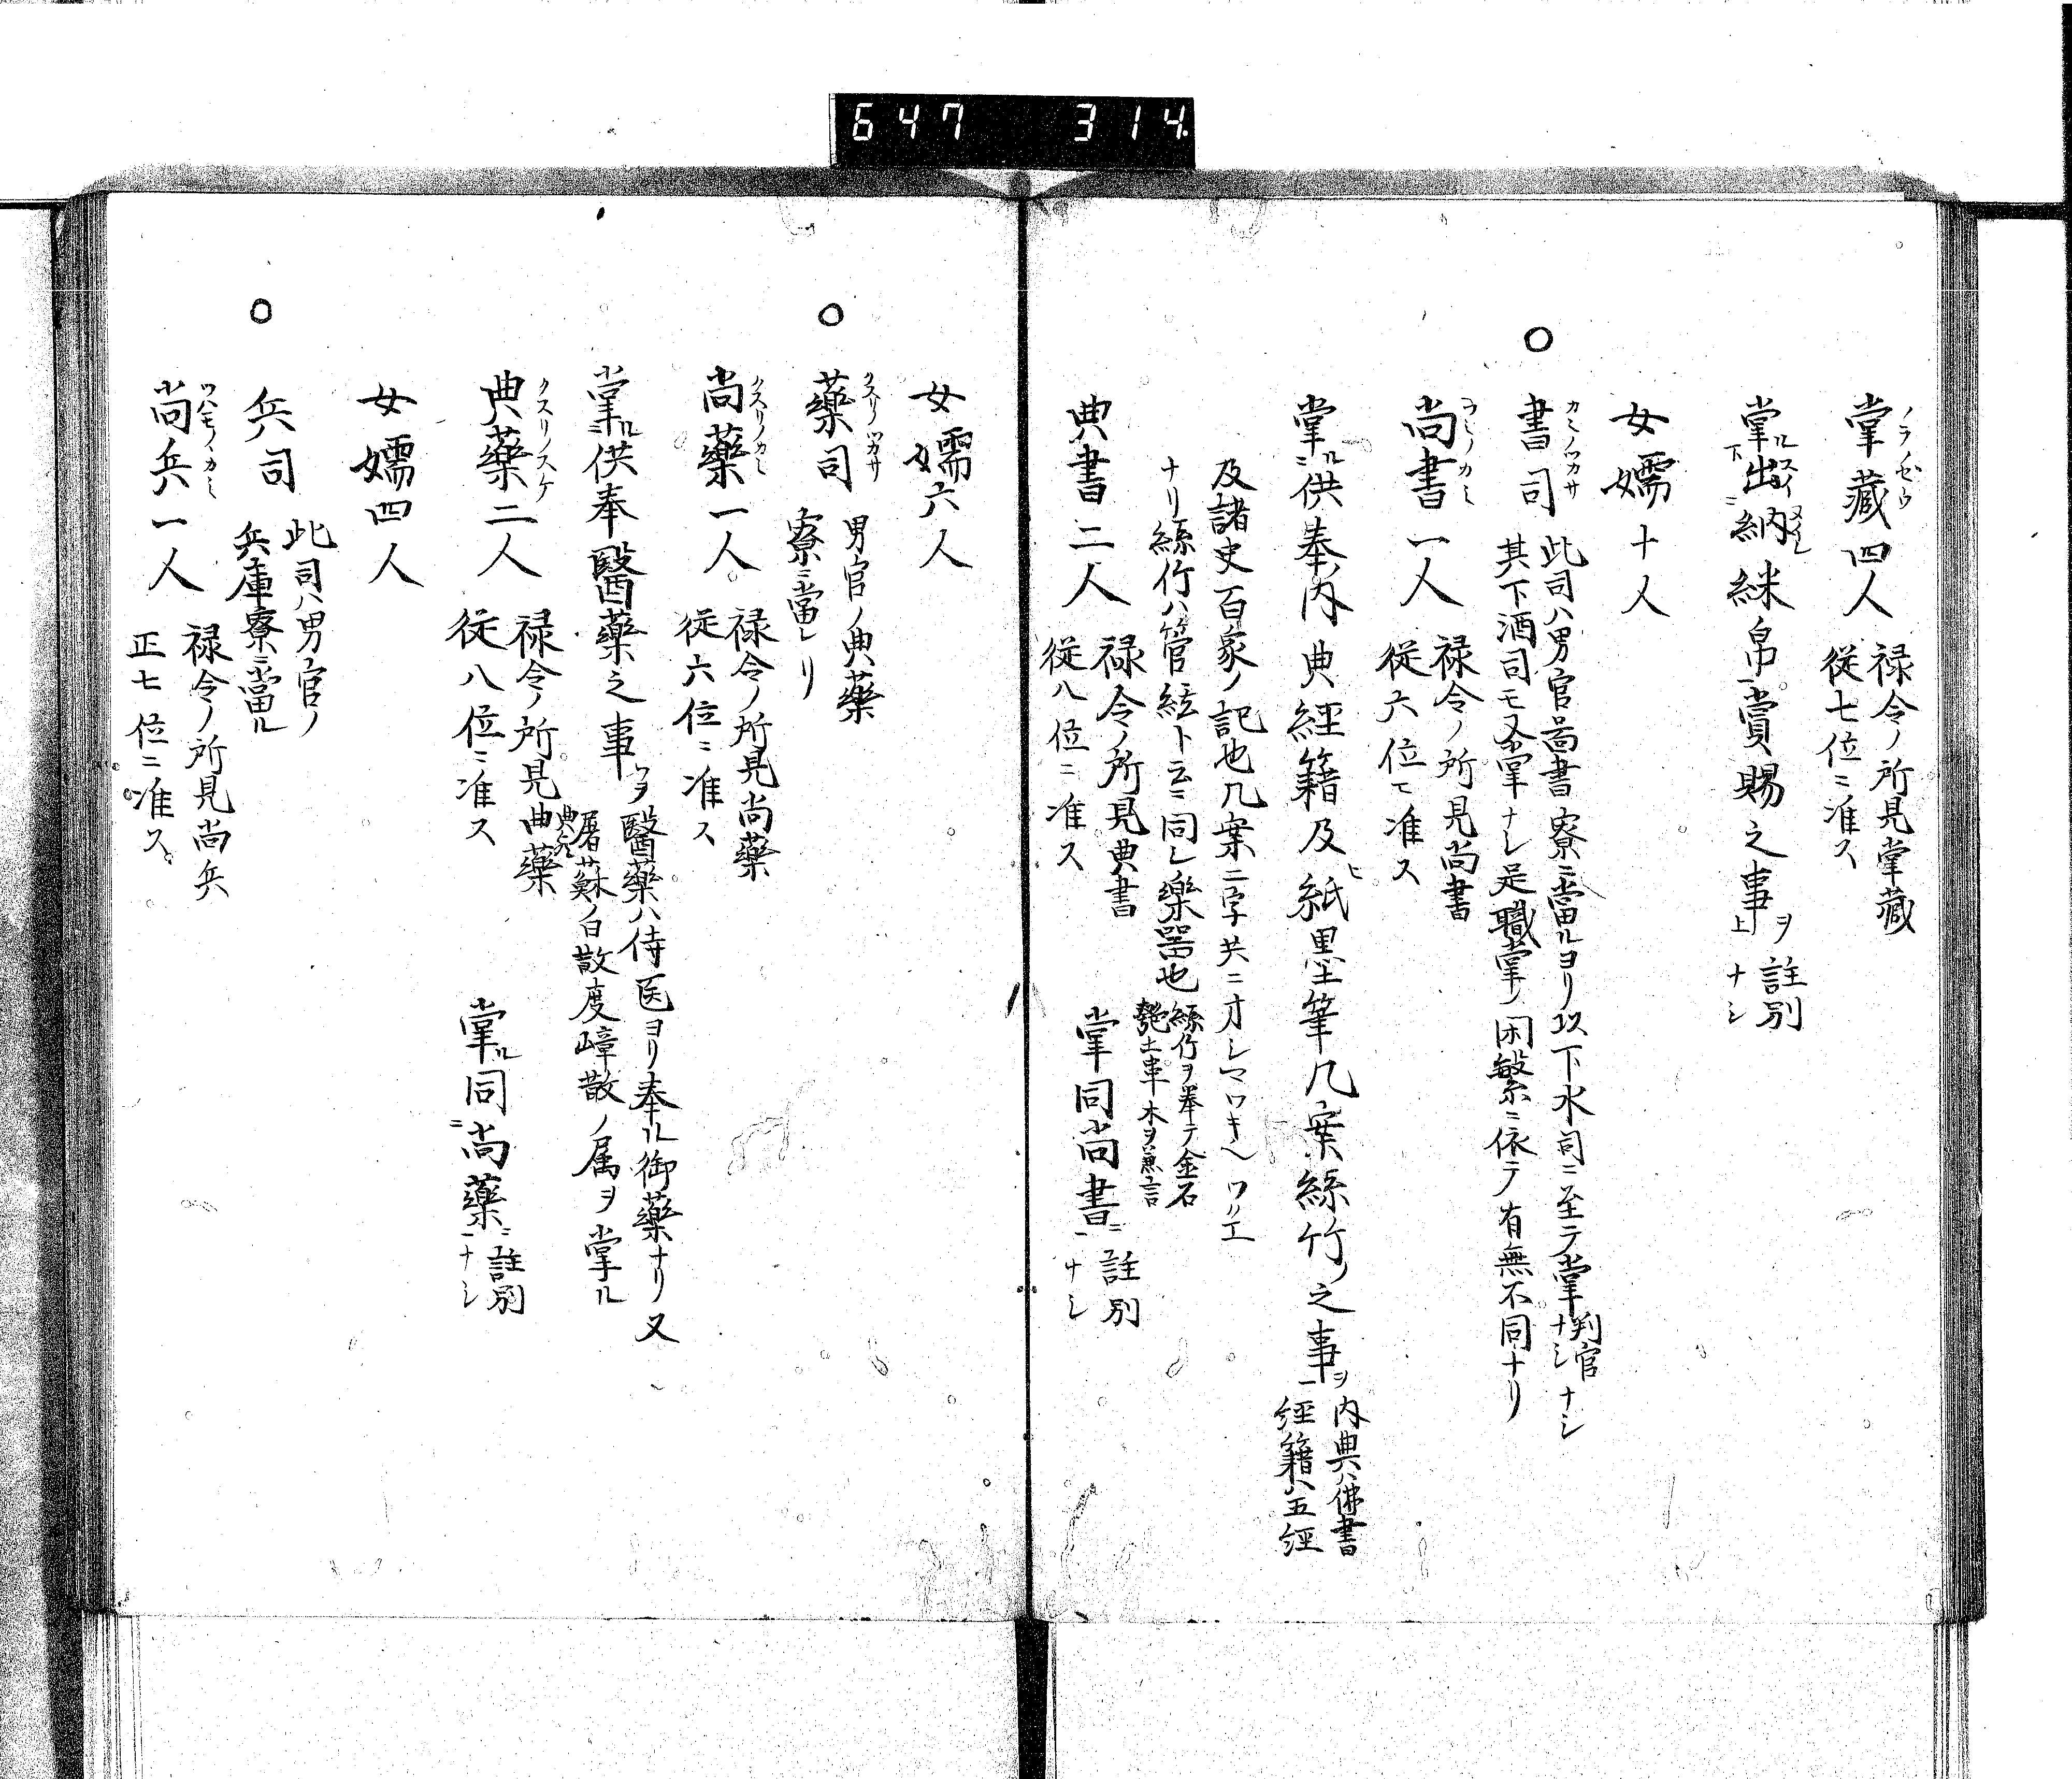 647 314
掌藏四人 禄令ノ所見掌藏
從七位ニ准ス
掌ル出納綵帛賞賜之事ヲ 註別
ナシ
女孺十人
○書司 カミノツカサ 此司ハ男官啚書寮ニ當ルヨリ以下水司ニ至テ掌判官ナシ
其下酒司モ又掌ナシ是職掌ノ閑繁ニ依テ有無不同ナリ
尚書一人 禄令ノ所見尚書
從六位ニ准ス
掌ル供奉内典經籍及ヒ紙墨筆几案絲竹ノ之事ヲ 内典ハ佛書
經籍ハ五經
及諸史百家ノ記也几案二字共ニオシマツキ
ナリ絲竹ハ管絃ト云ニ同シ樂器也 絲竹ヲ舉テ金石
匏土革木ヲ兼言
典書二人 禄令ノ所見典書
從八位ニ准ス
掌同尚書ニ 註別
ナシ
女孺六人
○藥司 クスリノツカサ 男官ノ典藥
寮ニ當レリ
尚藥一人 クスリノカミ 禄令ノ所見尚藥
從六位ニ准ス
掌ル供奉醫藥之事ヲ 醫藥ハ侍医ヨリ奉ル御藥ナリ又
屠蘇ノ白散度嶂散ノ属ヲ掌ル
典藥二人 クスリノスケ 禄令ノ所見典藥
從八位ニ准ス
掌ル同尚藥ニ 註別
ナシ
女孺四人
○兵司 此司ハ男官ノ
兵庫寮ニ當ル
尚兵一人 ツハモノノカミ 禄令ノ所見尚兵
正七位ニ准ス